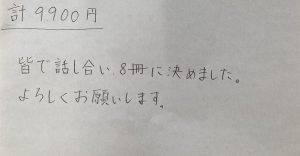 計 9,900円
皆で話し合い、8冊に決めました。
よろしくお願いします。